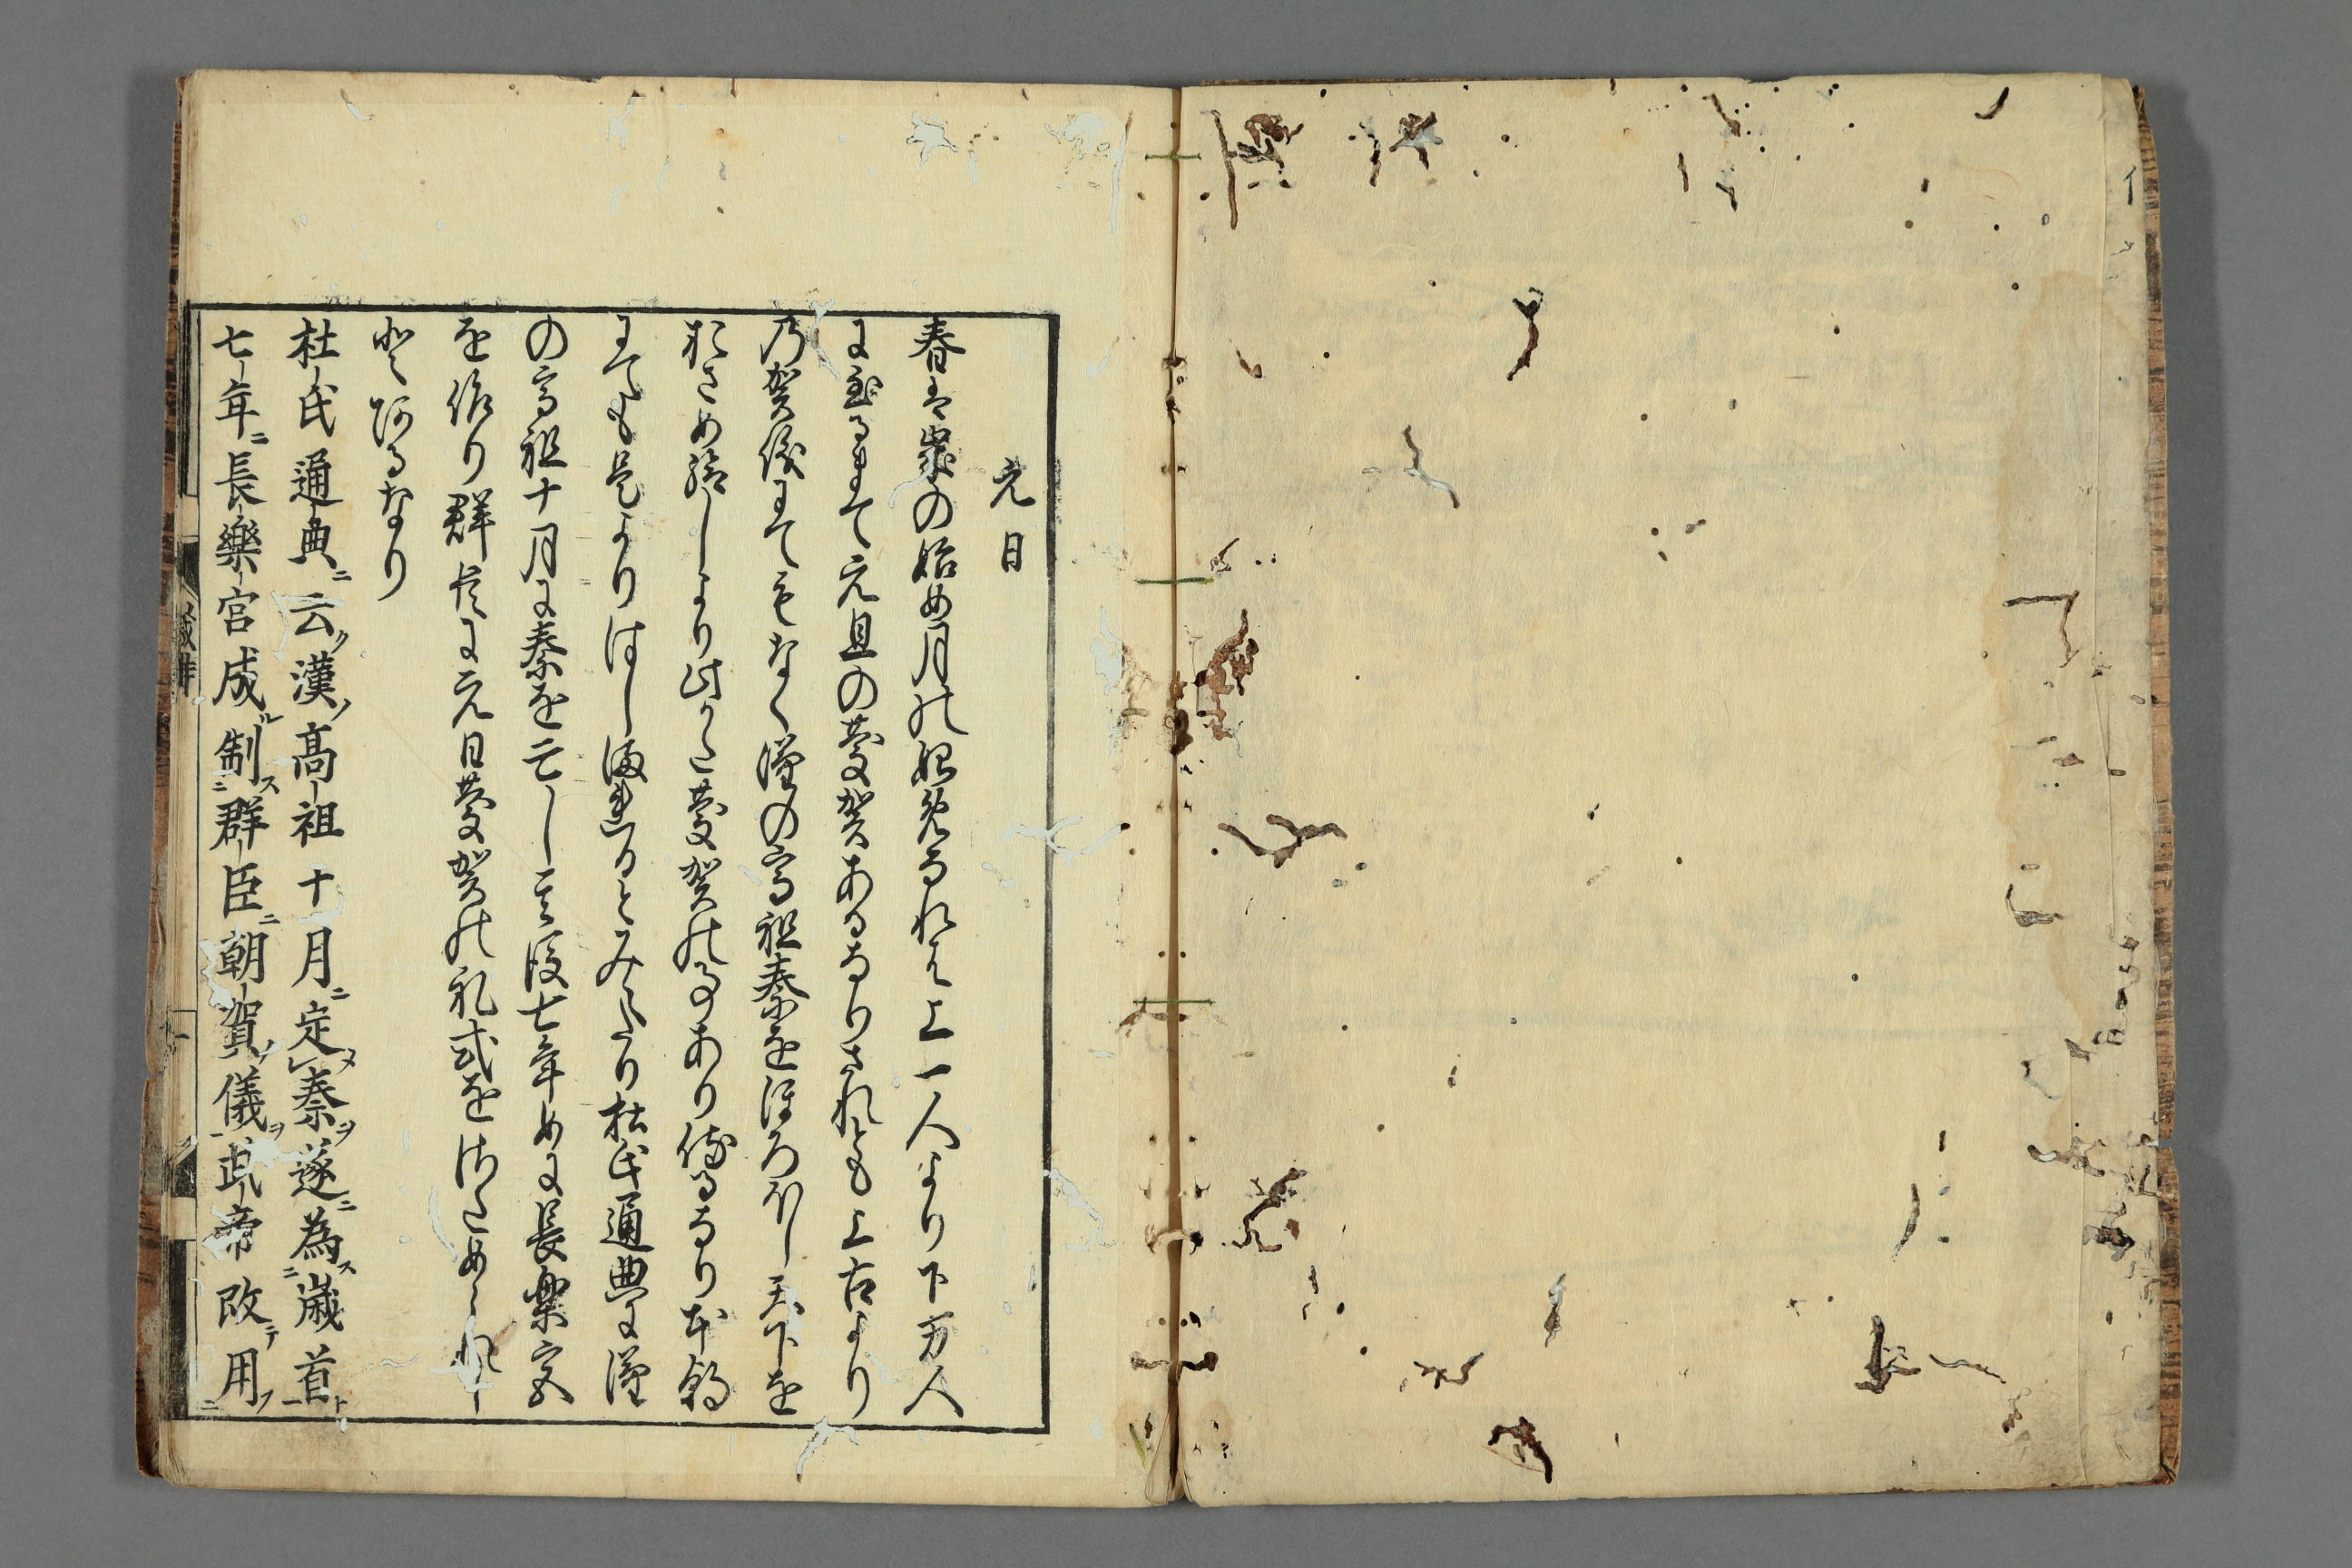 元日
春は歳の始め月の始めなれは上一人より下万人
に至るまて元旦の慶賀あるなりされとも上古より
乃賀儀にてもなく漢の高祖秦をほろほし天下を
おさめ給しより此かた慶賀の事あり侍るなり本朝
にても是よりはしまるとみえたり杜氏通典に漢
の高祖十月に秦を亡し其後七年めに長楽宮
を作り群臣に元日慶賀の礼式をはしめられし
とあるなり
杜氏通典ニ云ク漢ノ高祖十月ニ定メ秦ヲ遂ニ為ス歳首ト
七年ニ長樂宮成ル制ス群臣ニ朝賀ノ儀ヲ武帝改テ用フ